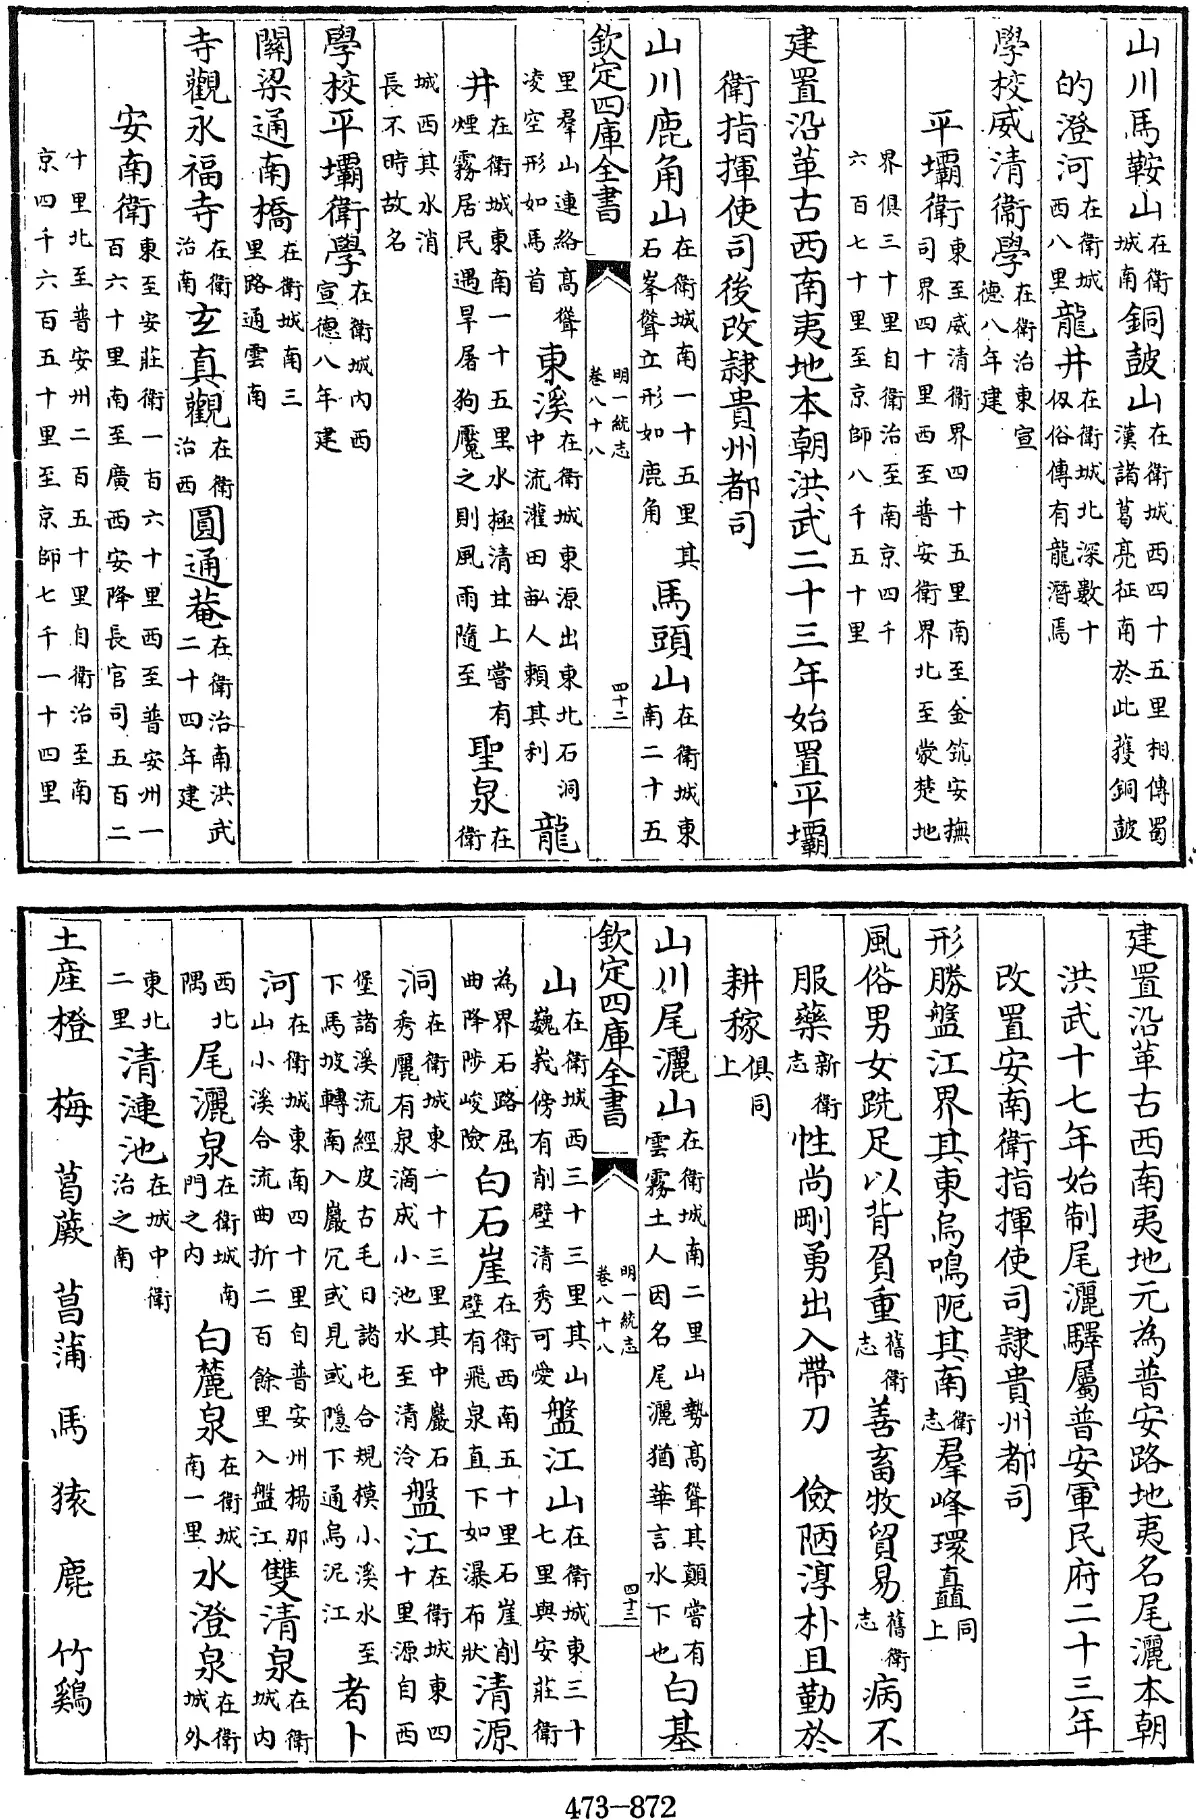 山川馬鞍山在衛城南銅鼓山在衛城西四十五里相傳蜀漢諸葛亮征南於此獲銅鼓
的澄河在衛城西八里龍井在衛城北深數十仭俗傳有龍潛焉
學校威清衛學在衛治東宣德八年建
平壩衛東至威清衛界四十五里南至金筑安撫司界四十里西至普安衛界北至蒙楚地
界俱三十里自衛治至南京四千六百七十里至京師八千五十里
建置沿革古西南夷地本朝洪武二十三年始置平壩
衛指揮使司後改隸貴州都司
山川鹿角山在衛城南一十五里其石峯聳立形如鹿角馬頭山在衛城東南二十五
欽定四庫全書
明一統志
卷八十八
四十二
里羣山連絡高聳凌空形如馬首東溪在衛城東源出東北石洞中流灌田畝人賴其利龍
井在衛城東南一十五里水極清甘上嘗有煙霧居民遇旱屠狗魘之則風雨隨至聖泉在衛
城西其水消長不時故名
學校平壩衛學在衛城内西宣德八年建
關梁通南橋在衛城南三里路通雲南
寺觀永福寺在衛治南玄真觀在衛治西圓通菴在衛治南洪武二十四年建
安南衛東至安莊衛一百六十里西至普安州一百六十里南至廣西安降長官司五百二
十里北至普安州二百五十里自衛治至南京四千六百五十里至京師七千一十四里
建置沿革古西南夷地元為普安路地夷名尾灑本朝
洪武十七年始制尾灑驛屬普安軍民府二十三年
改置安南衛指揮使司隸貴州都司
形勝盤江界其東烏鳴阨其南衛志羣峰環矗同上
風俗男女跣足以背負重舊衛志善畜牧貿易舊衛志病不
服藥新衛志性尚剛勇出入帶刀 儉陋淳朴且勤於
耕稼俱同上
山川尾灑山在衛城南二里山勢高聳其顛嘗有雲霧土人因名尾灑猶華言水下也白基
欽定四庫全書
明一統志
卷八十八
四十三
山在衛城西三十三里其山巍峩傍有削壁清秀可愛盤江山在衛城東三十七里與安莊衛
為界石路屈曲降陟峻險白石崖在衛西南五十里石崖削壁有飛泉直下如瀑布狀清源
洞在衛城東一十三里其中巖石秀麗有泉滴成小池水至清冷盤江在衛城東四十里源自西
堡諸溪流經皮古毛日諸屯合規模小溪水至下馬坡轉南入巖穴或見或隱下通烏泥江者卜
河在衛城東南四十里自普安州楊那山小溪合流曲折二百餘里入盤江雙清泉在衛城内
西北隅尾灑泉在衛城南門之内白麓泉在衛城南一里水澄泉在衛城外
東北二里清漣池在城中衛治之南
土産橙 梅 葛蕨 菖蒲 馬 猿 鹿 竹鷄
473—872